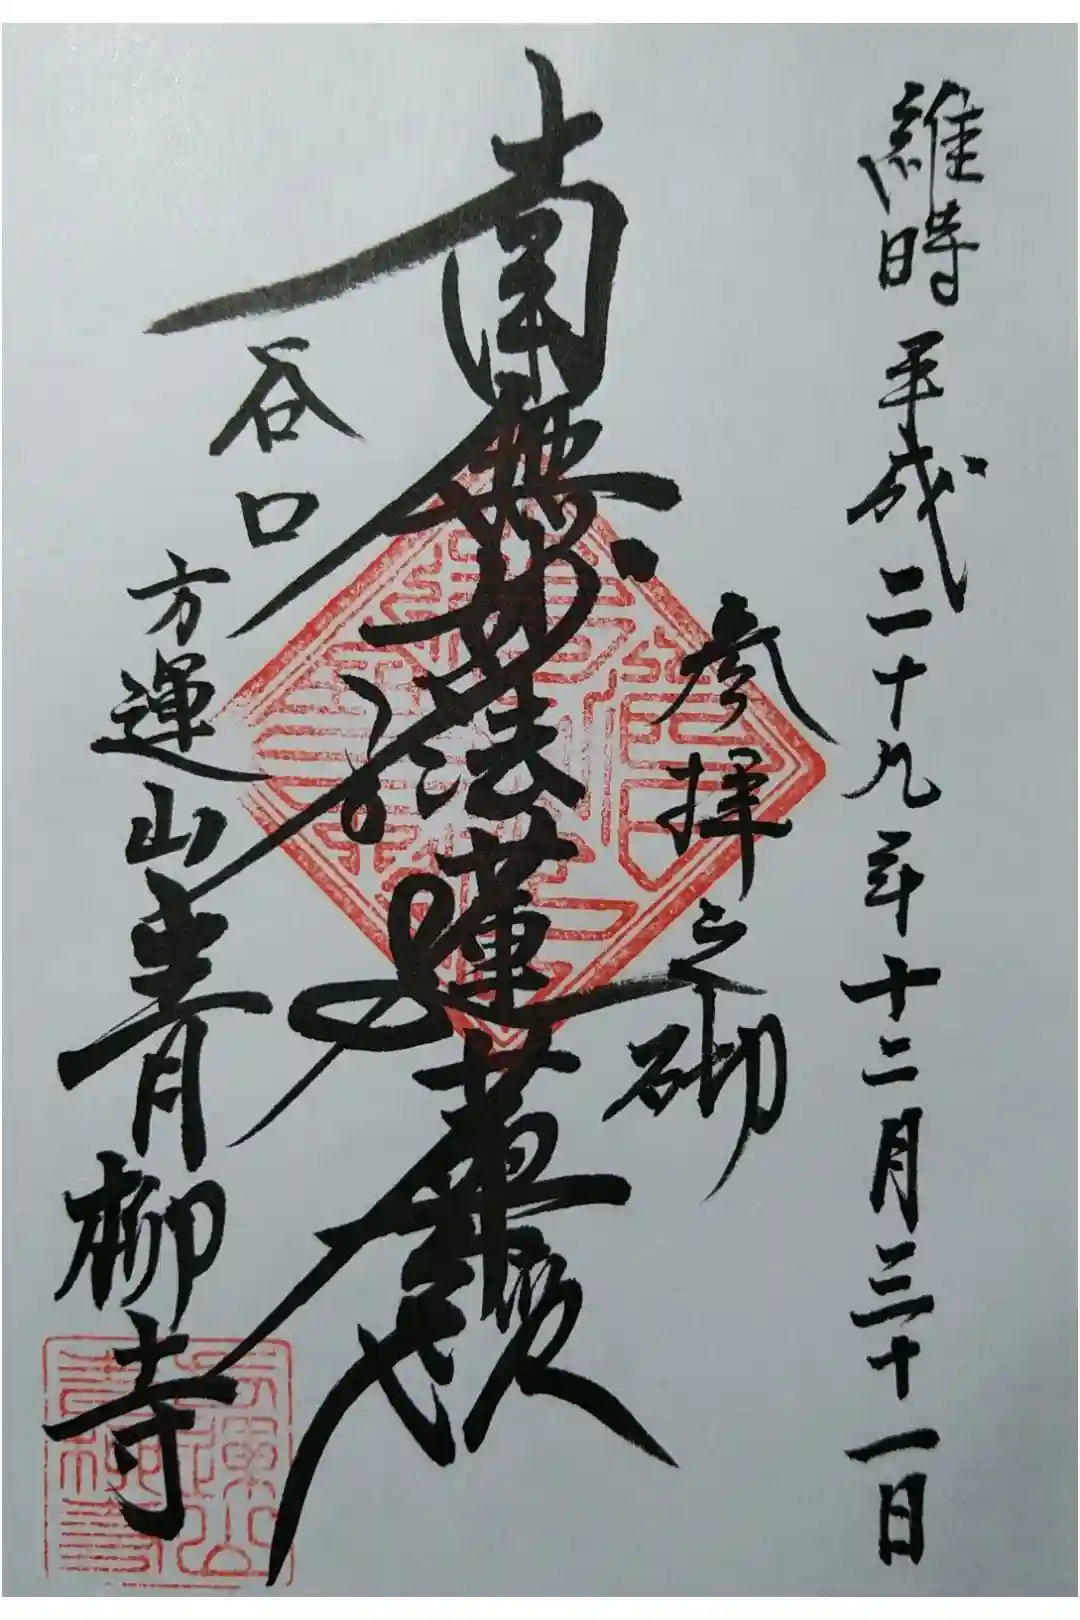 維時平成二十九年十二月三十一日
参拝之砌
南無妙法蓮華経
谷口
方運山青柳寺